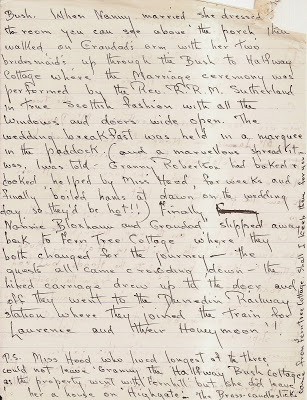 Bush. When Nanny married she dressed
to room you can see above the porch then
walked, on Grandad's arm, with her two
bridesmaids, up through the Bush to Halfway
Cottage where the Marriage ceremony was
performed by the Rev. R.R.M. Sutherland
in true Scottish fashion with all the
windows and doors wide open. The
wedding breakfast was held in a marquee
in the paddock, (and a marvellous spread it
was, I was told - Granny Robertson had baked &
cooked helped by Miss Hood, for weeks and
finally boiled hams at dawn on the wedding
day so they'd be hot!!) Finally,
Nannie Bloxham and Grandad slipped away
back to Fern Tree Cottage where they
both changed for the journey - the
guests all came crowding down - the
hired carriage drew up to the door and
off they went to the Dunedin Railway
station where they joined the train for
Lawrence and their Honeymoon!!
P.S. Miss Hood who lived longest of the three
could not leave Granny the Halfway Bush Cottage
as the property went with Fernhill but she did leave
her a house on Highgate - The Brass candlesticks